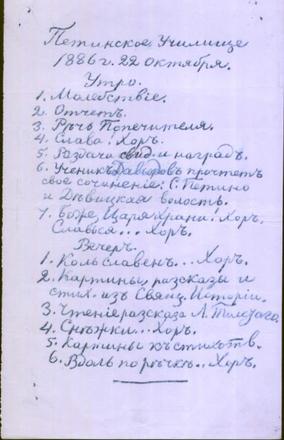 Петинское Училище
1886 г. 22 октября.
Утро.
1. Молебствіе.
2. Отчетъ.
3. Рѣчь Попечителя.
4. Слава! Хоръ.
5. Раздача свид. и наградъ.
6. Ученикъ Давыдовъ прочтетъ
свое сочиненіе: С. Петино
и Дѣвицкая волость.
7. Боже, Царя храни! Хоръ.
Славься... Хоръ.
Вечеръ.
1. Коль славенъ... Хоръ.
2. Картины, разсказы и
стих. изъ Свящ. Исторіи.
3. Чтеніе разсказа Л. Толстого.
4. Снѣжки... Хоръ.
5. Картины къ стихотв.
6. Вдоль по рѣчкѣ... Хоръ.